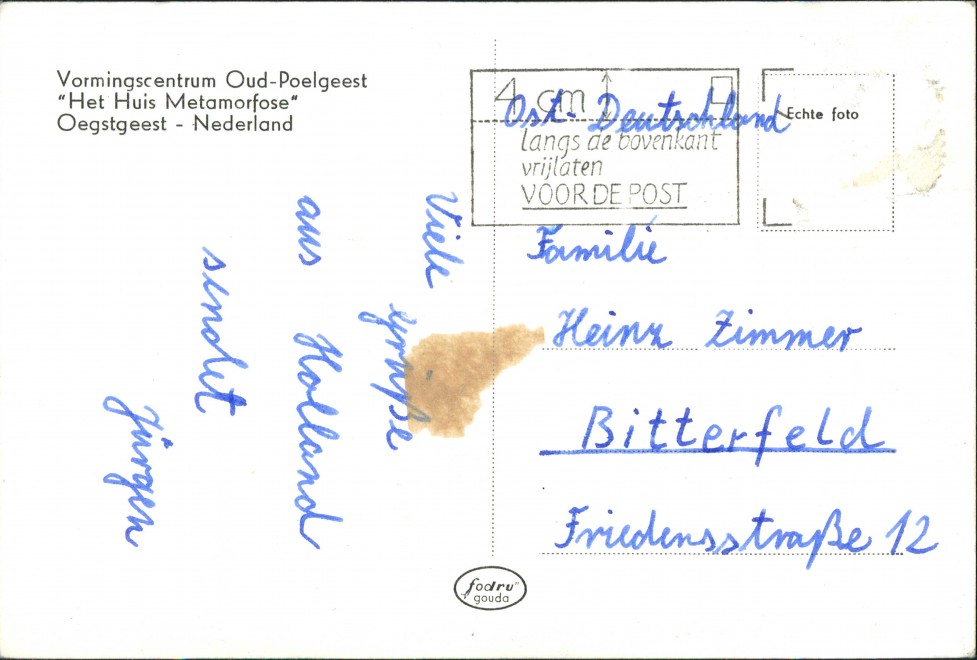 Vormingscentrum Oud-Poelgeest
"Het Huis Metamorfose"
Oegstgeest - Nederland
4 cm
langs de bovenkant
vrijlaten
VOOR DE POST
Echte foto
Viele
Grüße
aus Holland
sendet
Jürgen
Ost-Deutschland
Familie
Heinz Zimmer
Bitterfeld
Friedensstraße 12
fodru"
gouda